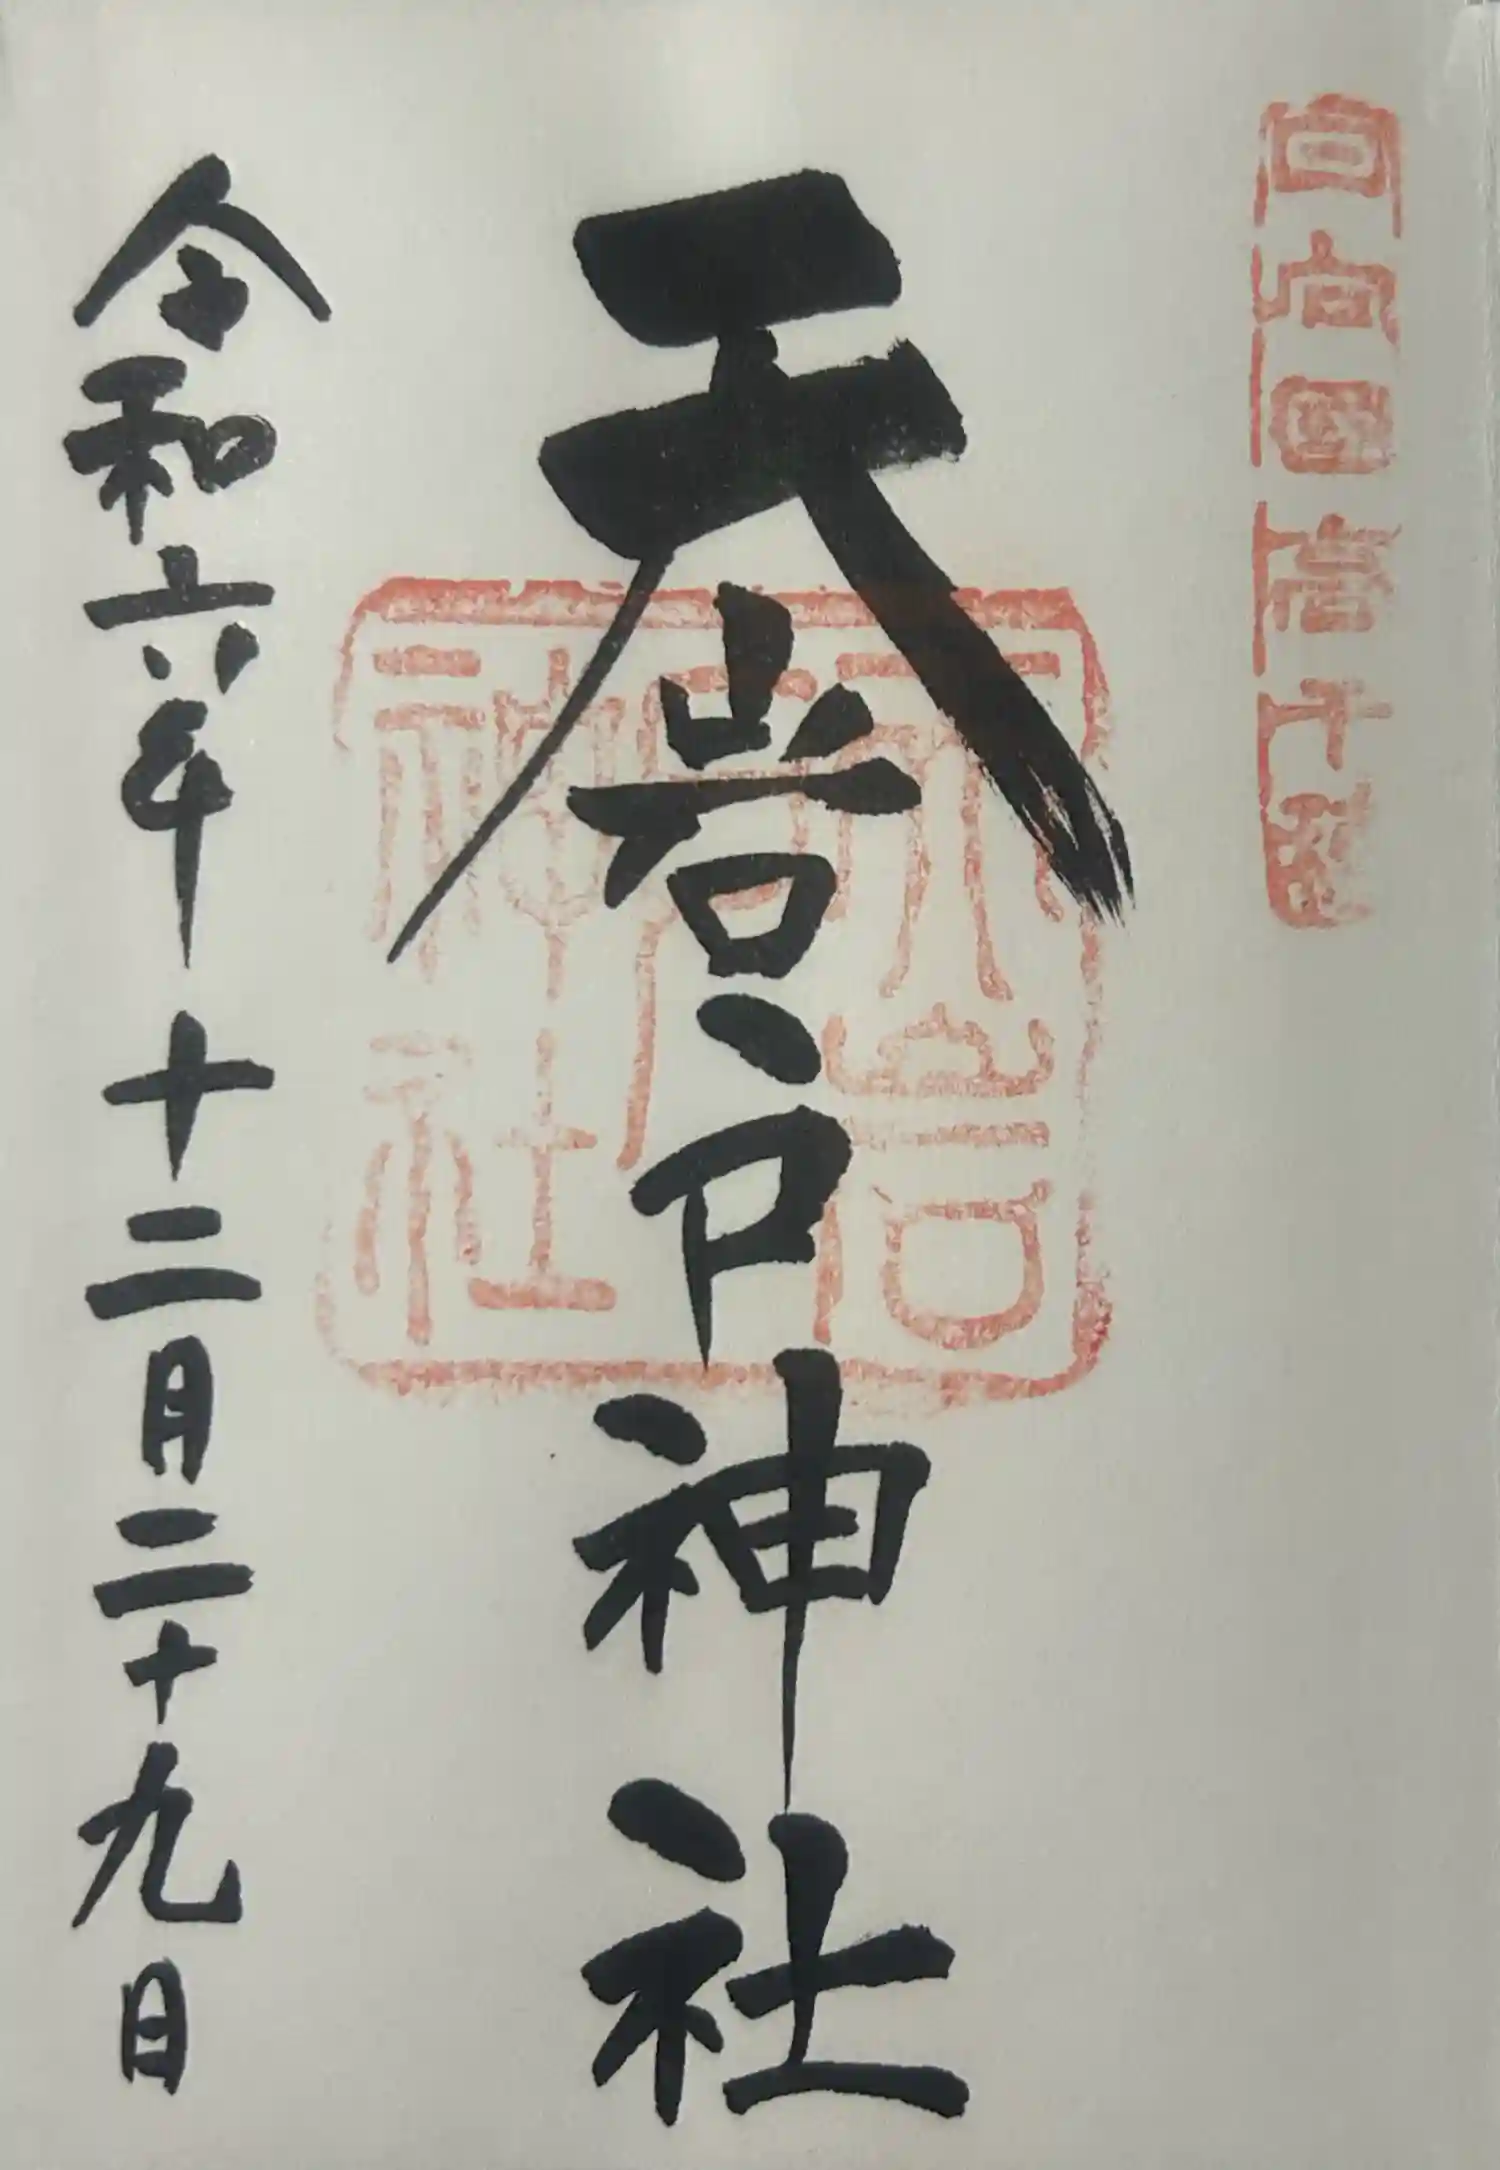 日向国高千穂
天岩戸神社
天岩戸神社
令和六年十二月二十九日